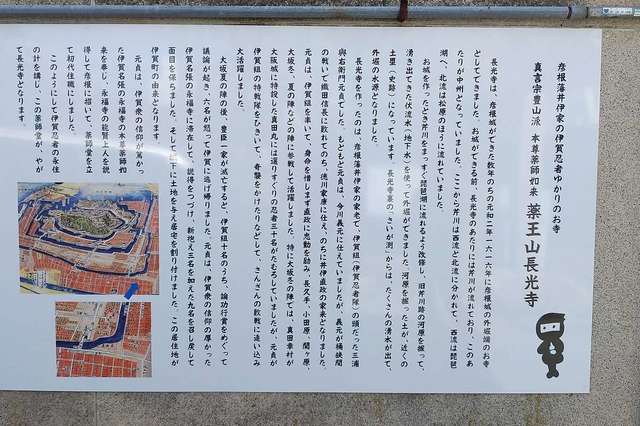 彦根藩井伊家の伊賀忍者ゆかりのお寺
真言宗豊山派 本尊薬師如来 薬王山長光寺
長光寺は、彦根城ができた数年のちの元和二年一六一六年に彦根城の外堀端のお寺
としてできました。お城ができる前、長光寺のあたりには芹川が流れており、このあ
たりが中州となっていました。ここから芹川は西流と北流に分かれて、西流は琵琶
湖へ、北流は松原のほうに流れていました。
お城を作ったとき芹川をまっすぐ琵琶湖に流れるよう改修し、旧芹川跡の河原を掘って、
湧き出てきた伏流水(地下水)を使って外堀ができました。河原を掘った土が、近くの
土塁(史跡)になっています。長光寺裏の「さいが渕」からは、たくさんの湧水が出て、
外堀の水源となりました。
長光寺を作ったのは、彦根藩井伊家の家老で、伊賀組(伊賀忍者隊)の頭だった三浦
與右衛門元貞でした。もともと元貞は、今川義元に仕えていましたが、義元が桶狭間
の戦いで織田信長に敗れてのち、徳川家康に仕え、のちに井伊直政の家来となりました。
元貞は、伊賀組を率いて、身命を惜しまず直政に忠勤を励み、長久手、小田原、関ヶ原、
大坂冬、夏の陣などの陣に参戦して活躍しました。特に大坂冬の陣では、真田幸村が
大阪城に特設した真田丸には選りすぐりの忍者三十名がたむろしていましたが、元貞が
伊賀組の特戦隊をひきいて、奇襲をかけたりなどして、さんざんの敗戦に追い込み
大活躍しました。
大坂夏の陣の後、豊臣一家が滅亡すると、伊賀組十名のうち、論功行賞をめぐって
議論が起き、六名が怒って伊賀に逃げ帰りました。元貞は、伊賀衆の信仰の厚かった
伊賀名張の永福寺に滞在して、説得をつづけ、新抱え三名を加えた九名を召し戻して
面目を保ちました。そして城下に土地を与え居宅を割り付けました。この居住地が
伊賀町の由来となります。
元貞は、伊賀衆の信仰が篤かっ
た伊賀名張の永福寺の本尊薬師如
来を奉じ、永福寺の能賢上人を説
得して彦根に招いて、薬師堂を立
て初代住職にしました。
このようにして伊賀忍者の永住
の計を講し、この薬師堂が、やが
て長光寺となります。